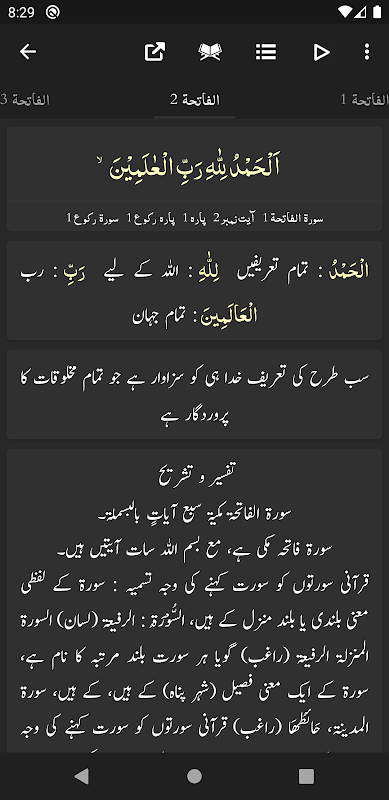 8:29
الفاتحة 1
الفاتحة 2
الفاتحة 3
اَلْحَمْدُ لِلّٰهِ رَبِّ الْعٰلَمِيْنَ ۙ
سورۃ الفاتحۃ 1 آیت نمبر 2 پارہ 1 پارہ رکوع 1 سورۃ رکوع 1
الْحَمْدُ : تمام تعریفیں لِلّٰهِ : اللہ کے لیے رَبِّ : رب
الْعَالَمِينَ : تمام جہان
سب طرح کی تعریف خدا ہی کو سزاوار ہے جو تمام مخلوقات کا
پروردگار ہے
تفسیر و تشریح
سورۃ الفاتحۃ مکیۃ سبع آیاتٍ بالبسملۃ۔
سورۃ فاتحہ مکی ہے، مع بسم اللہ سات آیتیں ہیں۔
قرآنی سورتوں کو سورت کہنے کی وجہ تسمیہ : سورۃ کے لفظی
معنی بلندی یا بلند منزل کے ہیں، السُّوْرَۃ : الرفیعۃ (لسان) السورۃ
المنزلۃ الرفیعۃ (راغب) گویا ہر سورت بلند مرتبہ کا نام ہے،
سورۃ کے ایک معنی فصیل (شہر پناہ) کے ہیں، کے ہیں، سورۃ
المدینۃ، حَائطُھَا (راغب) قرآنی سورتوں کو سورت کہنے کی وجہ